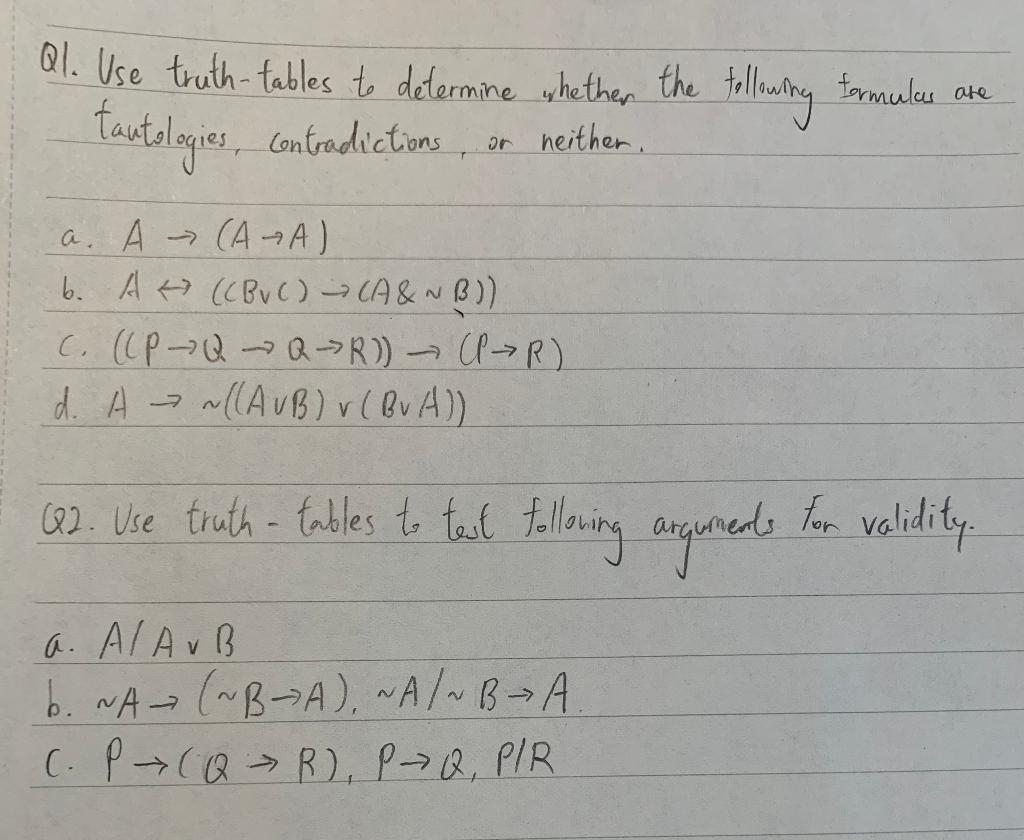 Q1. Use truth-tables to determine whether the following formulas are
tautologies, contradictions, or neither.
a. A → (A→A)
b. A ↔ ((BvC) → (A & ~B))
c. ((P→Q → Q→R)) → (P→R)
d. A → ~((AvB) v (BvA))
Q2. Use truth-tables to test following arguments for validity.
a. A/AvB
b. ~A → (~B→A), ~A/~B→A.
c. P→(Q → R), P→Q, P/R